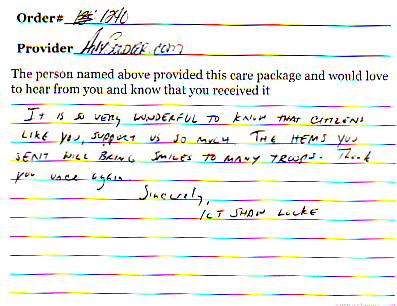 Order# 1240
Provider AnySoldier.com
The person named above provided this care package and would love
to hear from you and know that you received it
IT IS SO VERY WONDERFUL TO KNOW THAT CITIZENS
LIKE YOU, SUPPORT US SO MUCH. THE ITEMS YOU
SENT WILL BRING SMILES TO MANY TROOPS. Thank
you once again.
Sincerely,
LOCKE